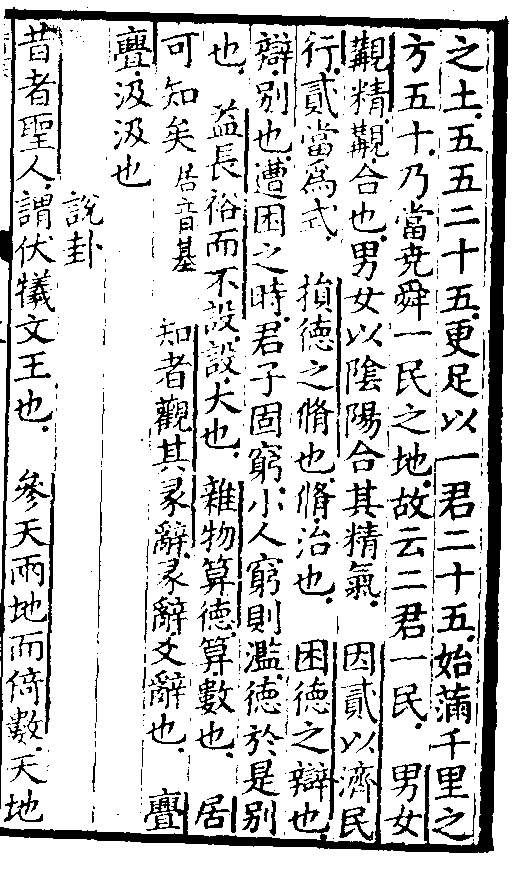 之土五五二十五更足以一君二十五始滿千里之
方五十乃當堯舜一民之地故云二君一民 男女
覯精覯合也男女以陰陽合其精氣 因貳以濟民
行貳當為式 損德之脩也脩治也 困德之辯也
辯別也遭困之時君子固窮小人窮則濫德於是別
也 益長裕而不設設大也 雜物算德算數也 居
可知矣居音基 知者觀其彖辭彖辭爻辭也 亹
亹汲汲也
說卦
昔者聖人謂伏犧文王也 參天兩地而倚數天地